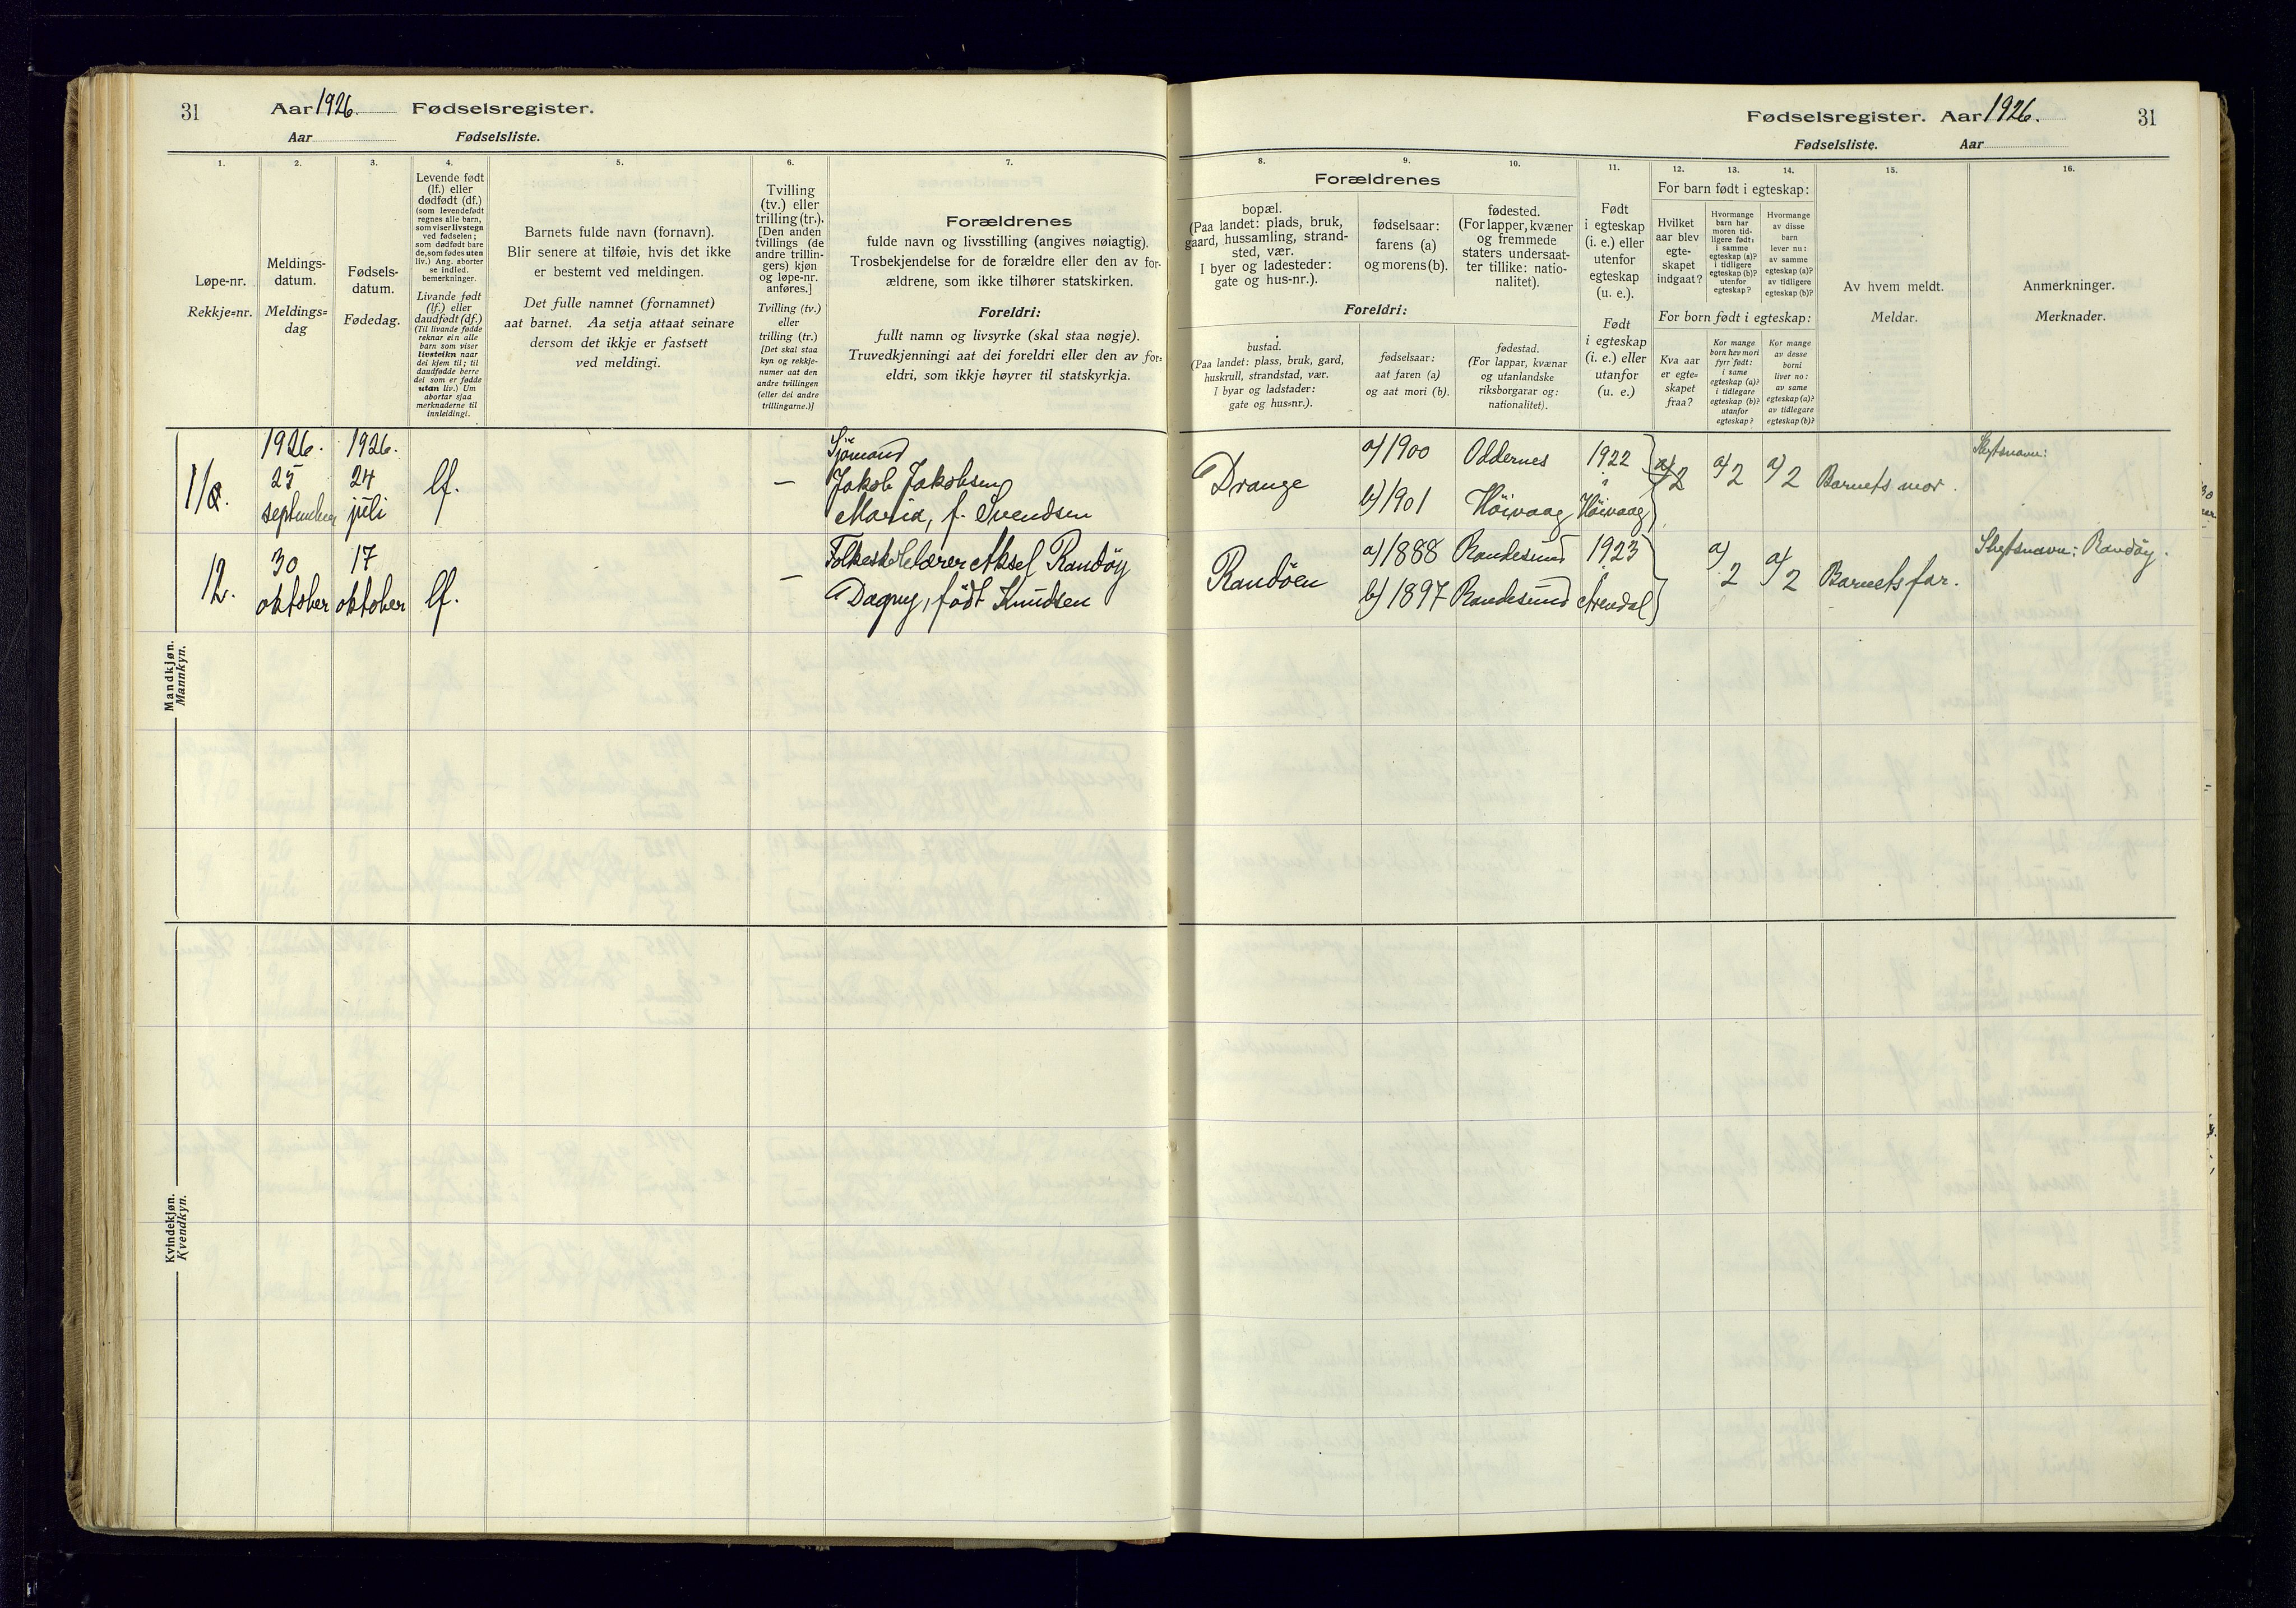 31
Aar 1926. Fødselsregister.
Aar Fødselsliste.
1.
2.
3.
4.
5.
6.
7.
Løpe-nr.
Rekkje=nr.
Meldings-
datum.
Meldings=
dag
Fødsels-
datum.
Fødedag.
Levende født
(lf.) eller
dødfødt (df.)
(som levendefødt
regnes alle barn,
som viser livstegn
ved fødselen;
som dødfødt bare
de, som fødes uten
liv.) Ang. aborter
se indled.
bemerkninger.
Livande født
(lf.) eller
daudfødt (df.)
(Til livande fødde
reknar ein alle
barn som viser
livsteikn naar
dei kjem til; til
daudfødde berre
dei som er fødde
utan liv.) Um
abortar sjaa
merknaderne til
innleidingi.
Barnets fulde navn (fornavn).
Blir senere at tilføie, hvis det ikke
er bestemt ved meldingen.
Det fulle namnet (fornamnet)
aat barnet. Aa setja attaat seinare
dersom det ikkje er fastsett
ved meldingi.
Tvilling
(tv.) eller
trilling (tr.).
[Den anden
tvillings (de
andre trillin-
gers) kjøn
og løpe-nr.
anføres.]
Tvilling (tv.)
eller
trilling (tr.)
[Det skal staa
kyn og rekkje-
numer aat den
andre tvillingen
(eller dei andre
trillingarne.)]
Forældrenes
fulde navn og livsstilling (angives nøiagtig).
Trosbekjendelse for de forældre eller den av for-
ældrene, som ikke tilhører statskirken.
Foreldri:
fullt namn og livsyrke (skal staa nøgje).
Truvedkjenningi aat dei foreldri eller den av for=
eldri, som ikkje høyrer til statskyrkja.
Mandkjøn.
Mannkyn.
1926. 1926. Sjømand
11. 25 24 lf. – Jakob Jakobsen
september juli Maria, f. Svendsen
12. 30 17 lf. – Folkeskolelærer Aksel Randöy
oktober oktober Dagny, födt Knudsen
Kvindekjøn.
Kvendkyn.
Fødselsregister. Aar 1926. 31
Fødselsliste. Aar
8.
9.
10.
11.
12.
13.
14.
15.
16.
Forældrenes
bopæl.
(Paa landet: plads, bruk,
gaard, hussamling, strand-
sted, vær.
I byer og ladesteder:
gate og hus-nr.).
fødselsaar:
farens (a)
og morens (b).
fødested.
(For lapper, kvæner
og fremmede
staters undersaat-
ter tillike: natio-
nalitet).
Foreldri:
bustad.
(Paa landet: plass, bruk, gard,
huskrull, strandstad, vær.
I byar og ladstader:
gate og hus=nr.).
fødselsaar:
aat faren (a)
og aat mori (b).
fødestad.
(For lappar, kvænar
og utanlandske
riksborgarar og:
nationalitet).
Født
i egteskap
(i. e.) eller
utenfor
egteskap
(u. e.).
Født
i egteskap
(i. e.) eller
utanfor
(u. e.)
For barn født i egteskap:
Hvilket
aar blev
egte-
skapet
indgaat?
Hvormange
barn har
moren tid-
ligere født:
i samme
egteskap (a)?
i tidligere
egteskap (b)?
utenfor
egteskap?
Hvormange
av disse
barn
lever nu:
av samme
egteskap (a)?
av tidligere
egteskap (b)?
For born født i egteskap:
Kva aar
er egte=
skapet
fraa?
Kor mange
born hev mori
fyrr født:
i same
egteskap (a)?
i tidlegare
egteskap (b)?
utanfor
egteskap?
Kor mange
av desse
borni
liver no:
av same
egteskap (a)?
av tidlegare
egteskap (b)?
Av hvem meldt.
Meldar.
Anmerkninger.
Merknader.
Drange a) 1900 Oddernes 1922 a) 2 a) 2 a) 2 Barnets mor. Slegtsnavn:
b) 1901 Höivaag i Höivaag
Randöen a) 1888 Randesund 1923 a) 2 a) 2 Barnets far. Slegtsnavn: Randöy.
b) 1897 Randesund Arendal